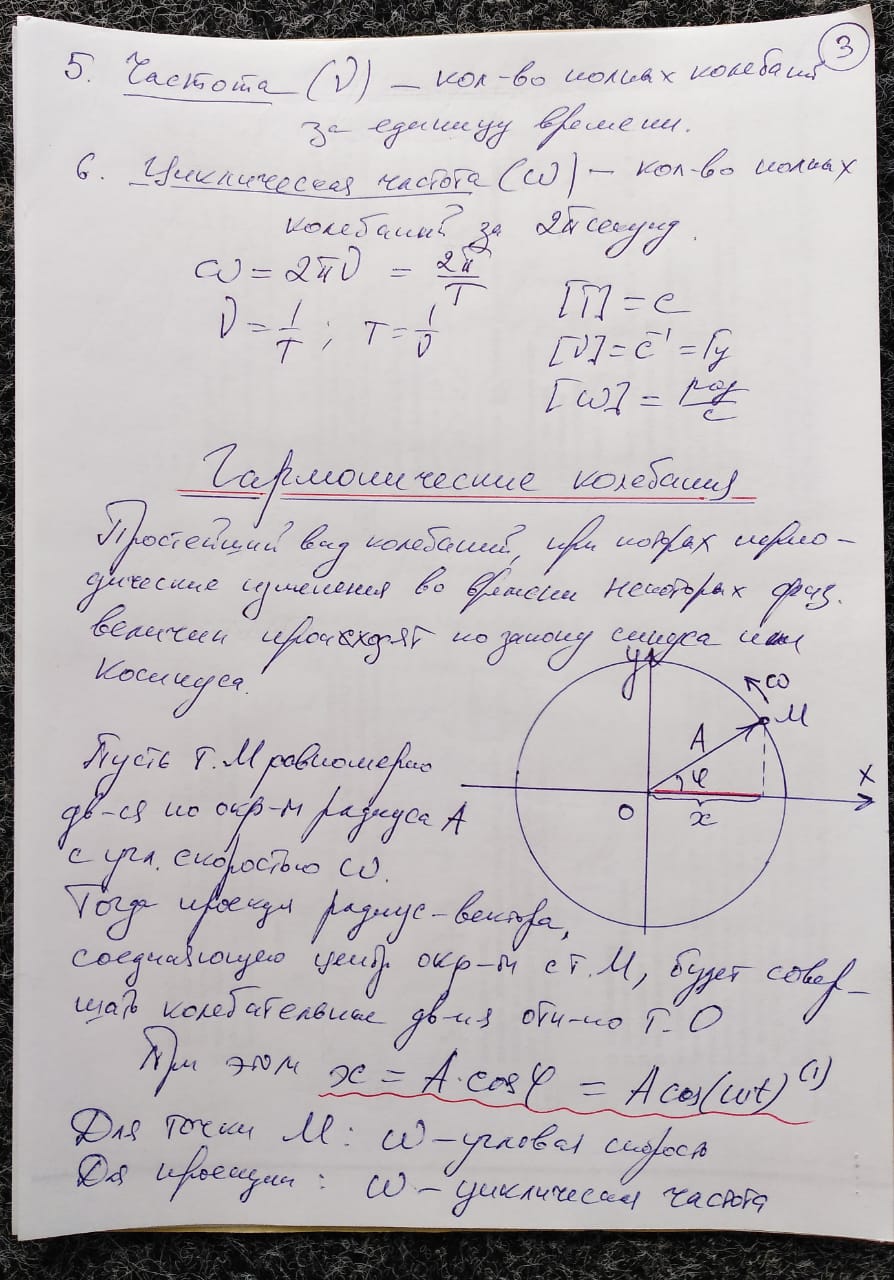 3
5. Частота (ν) — кол-во полных колебаний
за единицу времени.
6. Циклическая частота (ω) — кол-во полных
колебаний за 2π секунд.
ω = 2πν = 2π/T
ν = 1/T ; T = 1/ν
[T] = с
[ν] = с⁻¹ = Гц
[ω] = рад/с
Гармонические колебания
Простейший вид колебаний, при котрах перио-
дические изменения во времени некоторых физ.
величин происходят по закону синуса или
косинуса.
y
ω
M
A
φ
x
O
x
Пусть т. M равномерно
дв-ся по окр-ти радиуса A
с угл. скоростью ω.
Тогда проекция радиус-вектора,
соединяющего центр окр-ти с т. M, будет совер-
шать колебательные дв-ия отн-но т. O
При этом x = A·cosφ = A cos(ωt) (1)
Для точки M: ω — угловая скорость
Для проекции: ω — циклическая частота